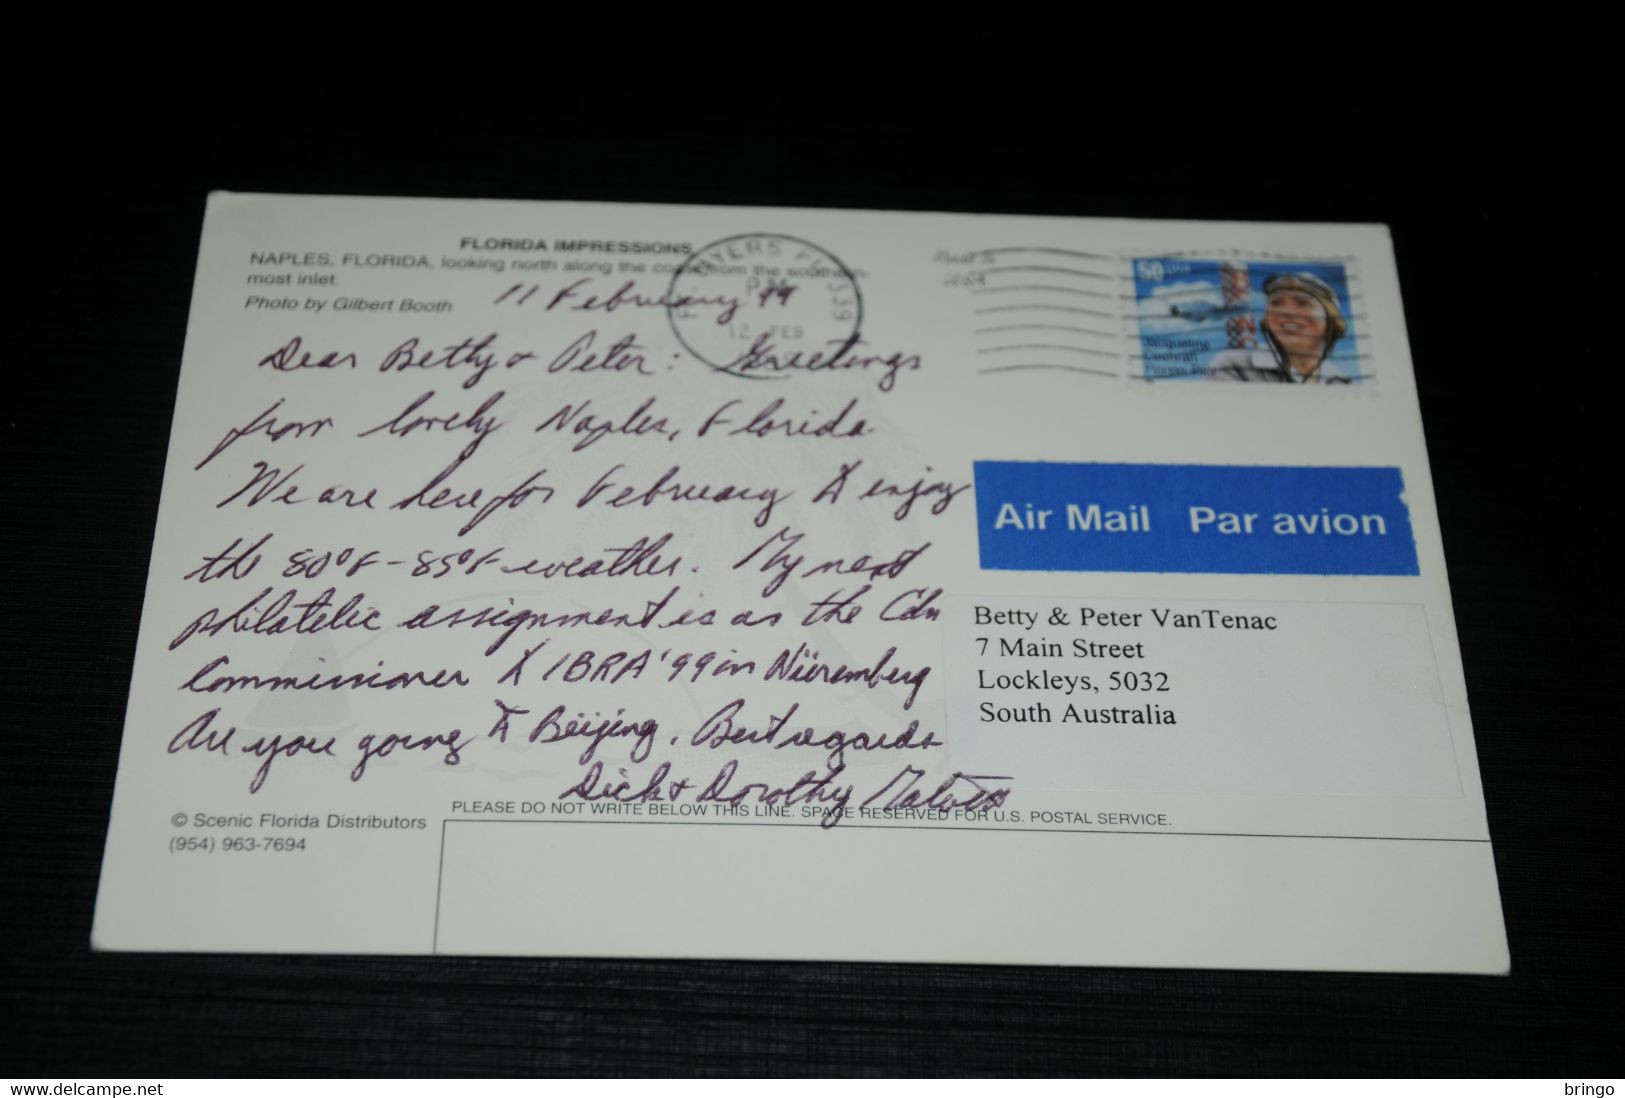 FLORIDA IMPRESSIONS
NAPLES, FLORIDA, looking north along the coast from the southern-
most inlet.
Photo by Gilbert Booth
MYERS FL 339
PM
12 FEB
50 USA
Jacqueline
Cochran
Pioneer Pilot
11 February 99
Dear Betty & Peter: Greetings
from lovely Naples, Florida.
We are here for February to enjoy
the 80°F-85°F weather. My next
philatelic assignment is as the Cdn
Commissioner to IBRA '99 in Nüremberg
Are you going to Beijing. Best regards
Dick & Dorothy
Air Mail Par avion
Betty & Peter VanTenac
7 Main Street
Lockleys, 5032
South Australia
PLEASE DO NOT WRITE BELOW THIS LINE. SPACE RESERVED FOR U.S. POSTAL SERVICE.
© Scenic Florida Distributors
(954) 963-7694
www.delcampe.net
bringo